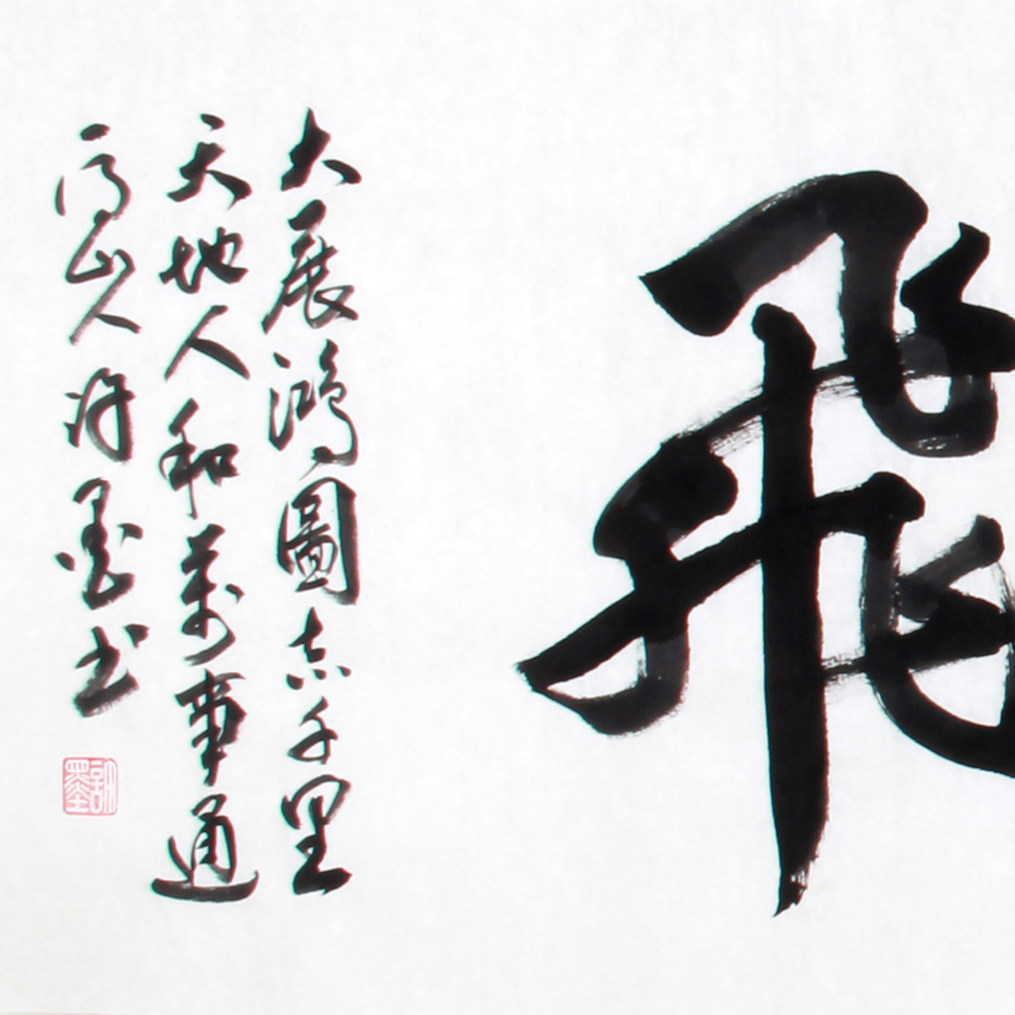 飛
大展鴻圖志千里
天地人和萬事通
高山人许墨书
許墨